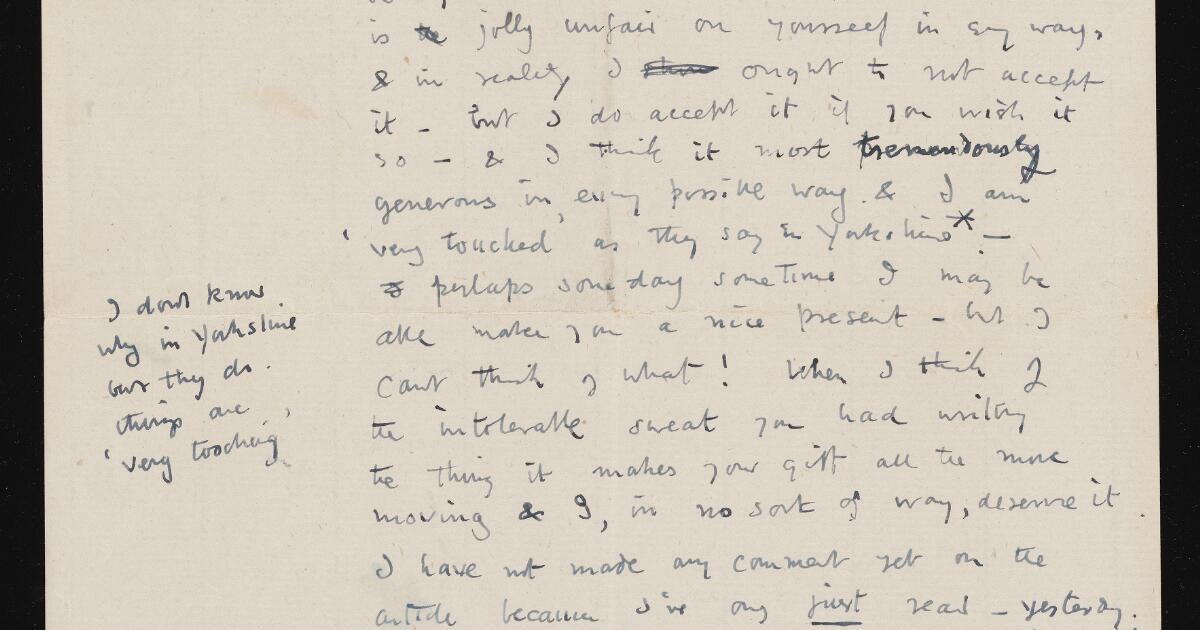 is jolly unfair on yourself in any way,
& in reality I ought to not accept
it - but I do accept it if you wish it
so - & I think it most tremendously
generous in every possible way. & I am
'very touched as they say in Yorkshire* -
perhaps some day sometime I may be
able make you a nice present - but I
can't think of what! When I think of
the intolerable sweat you had writing
the thing it makes your gift all the more
moving & I, in no sort of way, deserve it.
I have not made any comment yet on the
article because I've only just read - yesterday.
I don't know
why in Yorkshire
but they do.
things are
'very touching'